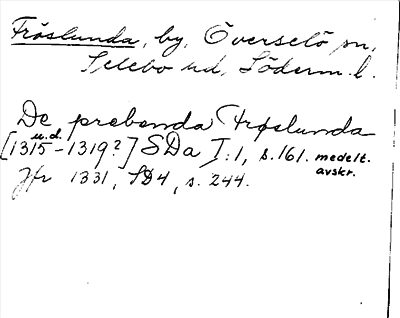 Fröslunda, by, Överselö sn,
Selebo hd, Söderm. l.
De prebenda Frøslunda
u.d.
[1315-1319?] SDa I:1, s.161. medelt.
avskr.
Jfr 1331, SD4, s. 244.